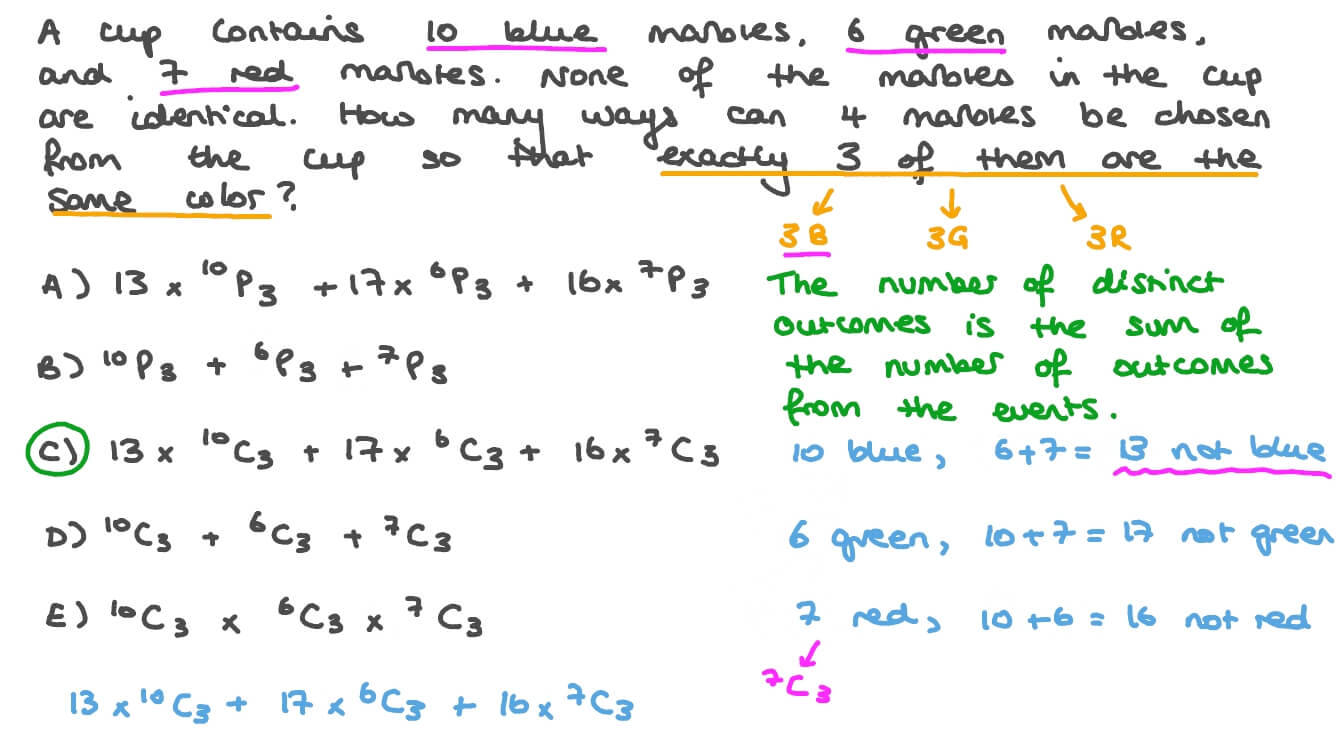 A cup contains 10 blue marbles, 6 green marbles,
and 7 red marbles. None of the marbles in the cup
are identical. How many ways can 4 marbles be chosen
from the cup so that exactly 3 of them are the
same color?
3B 3G 3R
A) 13 × ¹⁰P₃ + 17 × ⁶P₃ + 16 × ⁷P₃
B) ¹⁰P₃ + ⁶P₃ + ⁷P₃
C) 13 × ¹⁰C₃ + 17 × ⁶C₃ + 16 × ⁷C₃
D) ¹⁰C₃ + ⁶C₃ + ⁷C₃
E) ¹⁰C₃ × ⁶C₃ × ⁷C₃
13 × ¹⁰C₃ + 17 × ⁶C₃ + 16 × ⁷C₃
The number of distinct
outcomes is the sum of
the number of outcomes
from the events.
10 blue, 6+7 = 13 not blue
6 green, 10+7 = 17 not green
7 red, 10+6 = 16 not red
⁷C₃